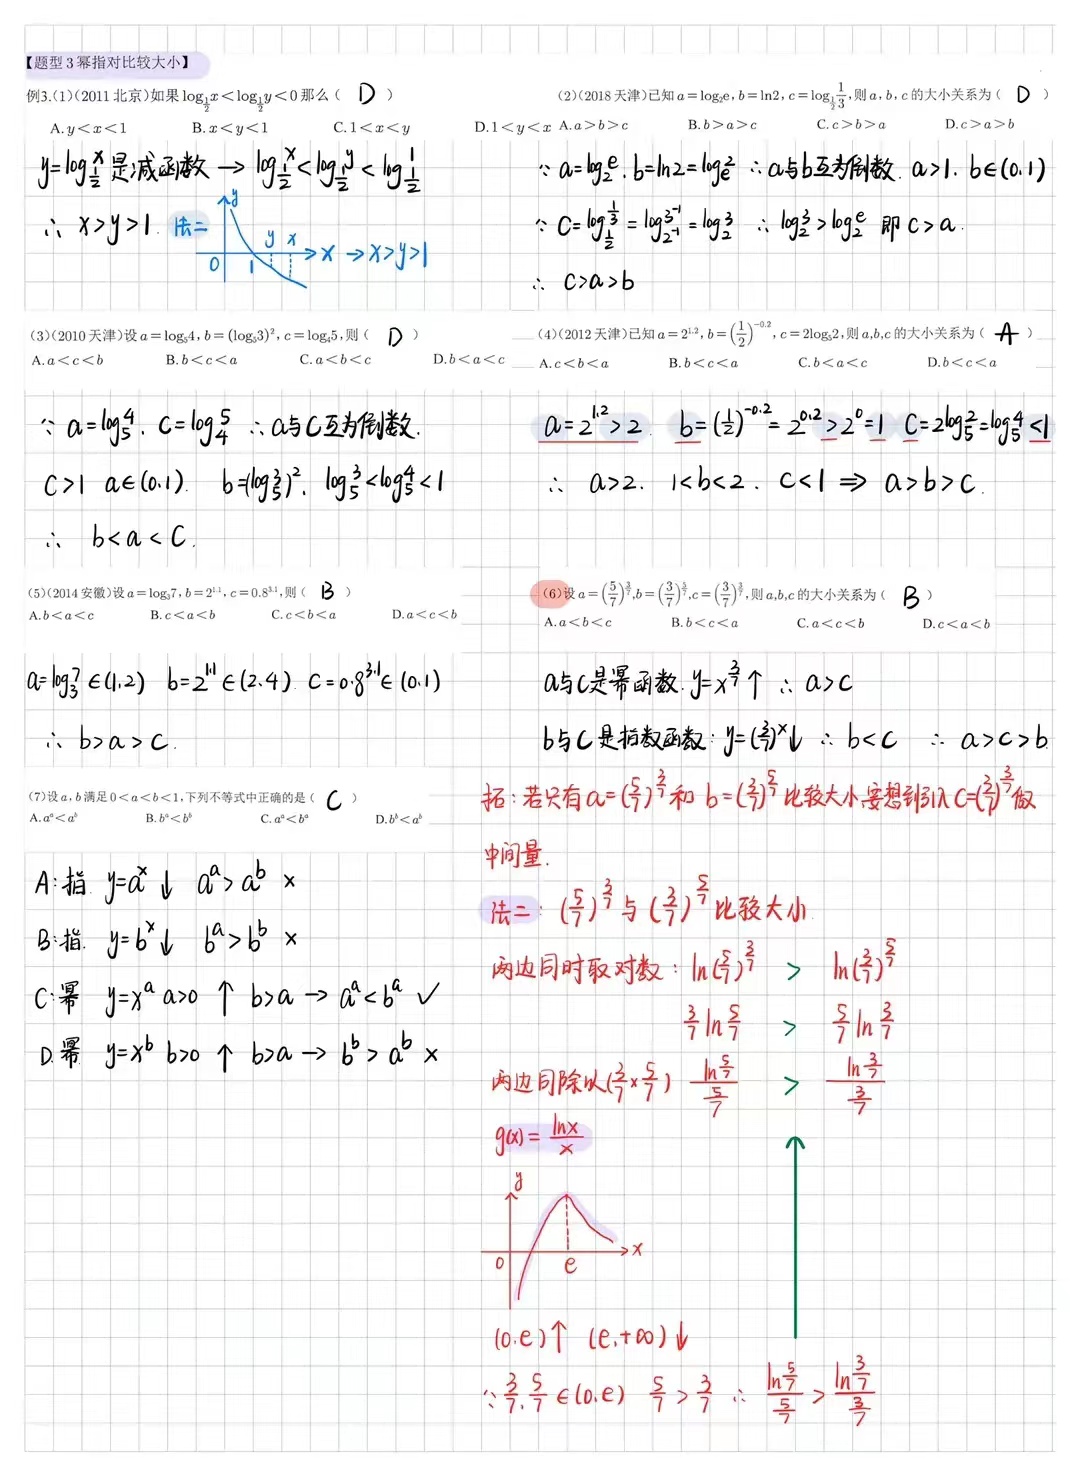 【题型3幂指对比较大小】
例3.(1)(2011北京)如果log_{1/2}x<log_{1/2}y<0那么( D )
A.y<x<1 B.x<y<1 C.1<x<y D.1<y<x
y=log_{1/2}x是减函数→log_{1/2}x<log_{1/2}y<log_{1/2}1
∴ x>y>1. 法二
y
y x
0 1 →x →x>y>1
(2)(2018天津)已知a=log₂e,b=ln2,c=log_{1/2}1/3,则a,b,c的大小关系为( D )
A.a>b>c B.b>a>c C.c>b>a D.c>a>b
∵ a=log₂e. b=ln2=logₑ2 ∴a与b互为倒数. a>1. b∈(0.1)
∵ C=log_{1/2}1/3=log_{2⁻¹}3⁻¹=log₂3 ∴ log₂3>log₂e 即 c>a.
∴ c>a>b
(3)(2010天津)设a=log₅4,b=(log₅3)²,c=log₄5,则( D )
A.a<c<b B.b<c<a C.a<b<c D.b<a<c
∵ a=log₅4. C=log₄5 ∴a与C互为倒数.
C>1 a∈(0.1). b=(log₅3)². log₅3<log₅4<1
∴ b<a<C.
(4)(2012天津)已知a=2^{1.2},b=(1/2)^{-0.2},c=2log₅2,则a,b,c的大小关系为( A )
A.c<b<a B.b<c<a C.b<a<c D.b<c<a
a=2^{1.2}>2. b=(1/2)^{-0.2}=2^{0.2}>2⁰=1 C=2log₅2=log₅4<1
∴ a>2. 1<b<2. C<1 ⇒ a>b>C.
(5)(2014安徽)设a=log₃7,b=2^{1.1},c=0.8^{3.1},则( B )
A.b<a<c B.c<a<b C.c<b<a D.a<c<b
a=log₃7∈(1.2) b=2^{1.1}∈(2.4). C=0.8^{3.1}∈(0.1)
∴ b>a>C.
(6)设a=(5/7)^{3/7},b=(3/7)^{5/7},c=(3/7)^{3/7},则a,b,c的大小关系为( B )
A.a<b<c B.b<c<a C.a<c<b D.c<a<b
a与C是幂函数.y=x^{3/7}↑ ∴ a>C
b与C是指数函数:y=(3/7)^x↓ ∴ b<C ∴ a>C>b
拓:若只有a=(5/7)^{3/7}和b=(3/7)^{5/7}比较大小要想到引入C=(3/7)^{3/7}做
中间量.
法二:(5/7)^{3/7}与(3/7)^{5/7}比较大小
两边同时取对数:ln(5/7)^{3/7} > ln(3/7)^{5/7}
3/7 ln5/7 > 5/7 ln3/7
两边同除以(3/7×5/7) ln5/7 / 5/7 > ln3/7 / 3/7
g(x)=lnx/x
y
0 e x
(0.e)↑ (e.+∞)↓
∵3/7.5/7∈(0.e) 5/7>3/7 ∴ ln5/7 / 5/7 > ln3/7 / 3/7
(7)设a,b满足0<a<b<1,下列不等式中正确的是( C )
A.a^a<a^b B.b^a<b^b C.a^a<b^a D.b^b<a^b
A:指. y=a^x↓ a^a>a^b ×
B:指. y=b^x↓ b^a>b^b ×
C:幂 y=x^a a>0 ↑ b>a → a^a<b^a ✓
D.幂 y=x^b b>0 ↑ b>a → b^b>a^b ×